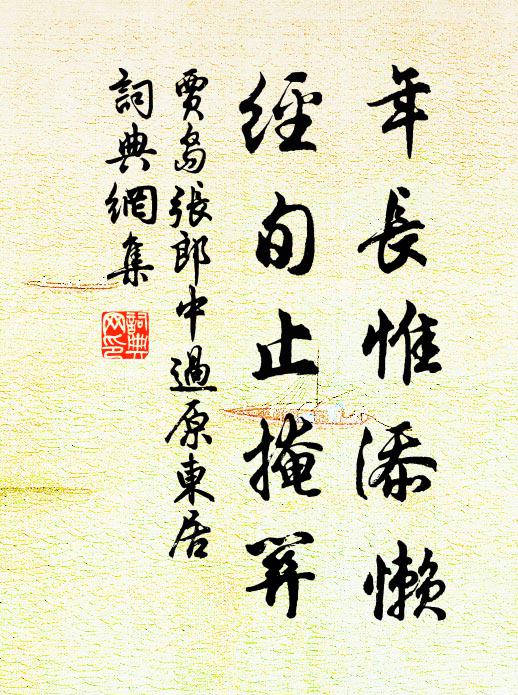 年長惟添懶
經旬止掩關
賈島張郎中過原東居
詞典網集
詞典
网印